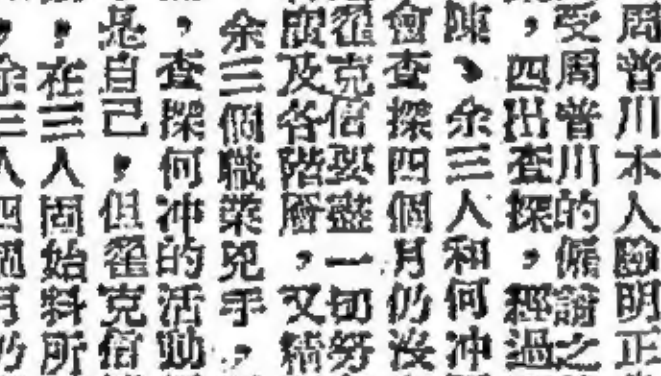 周普川本人臉明正
受周普川的僱請之
，四出查探，經過
陳、余三人和何冲
會查探四個月仍沒
翟克信要盡一切努
及各階層，又
余三個職業兇手，
，查探何冲的活動
是自己，但翟克信
，在三人固始料所
，余三人四個月仍